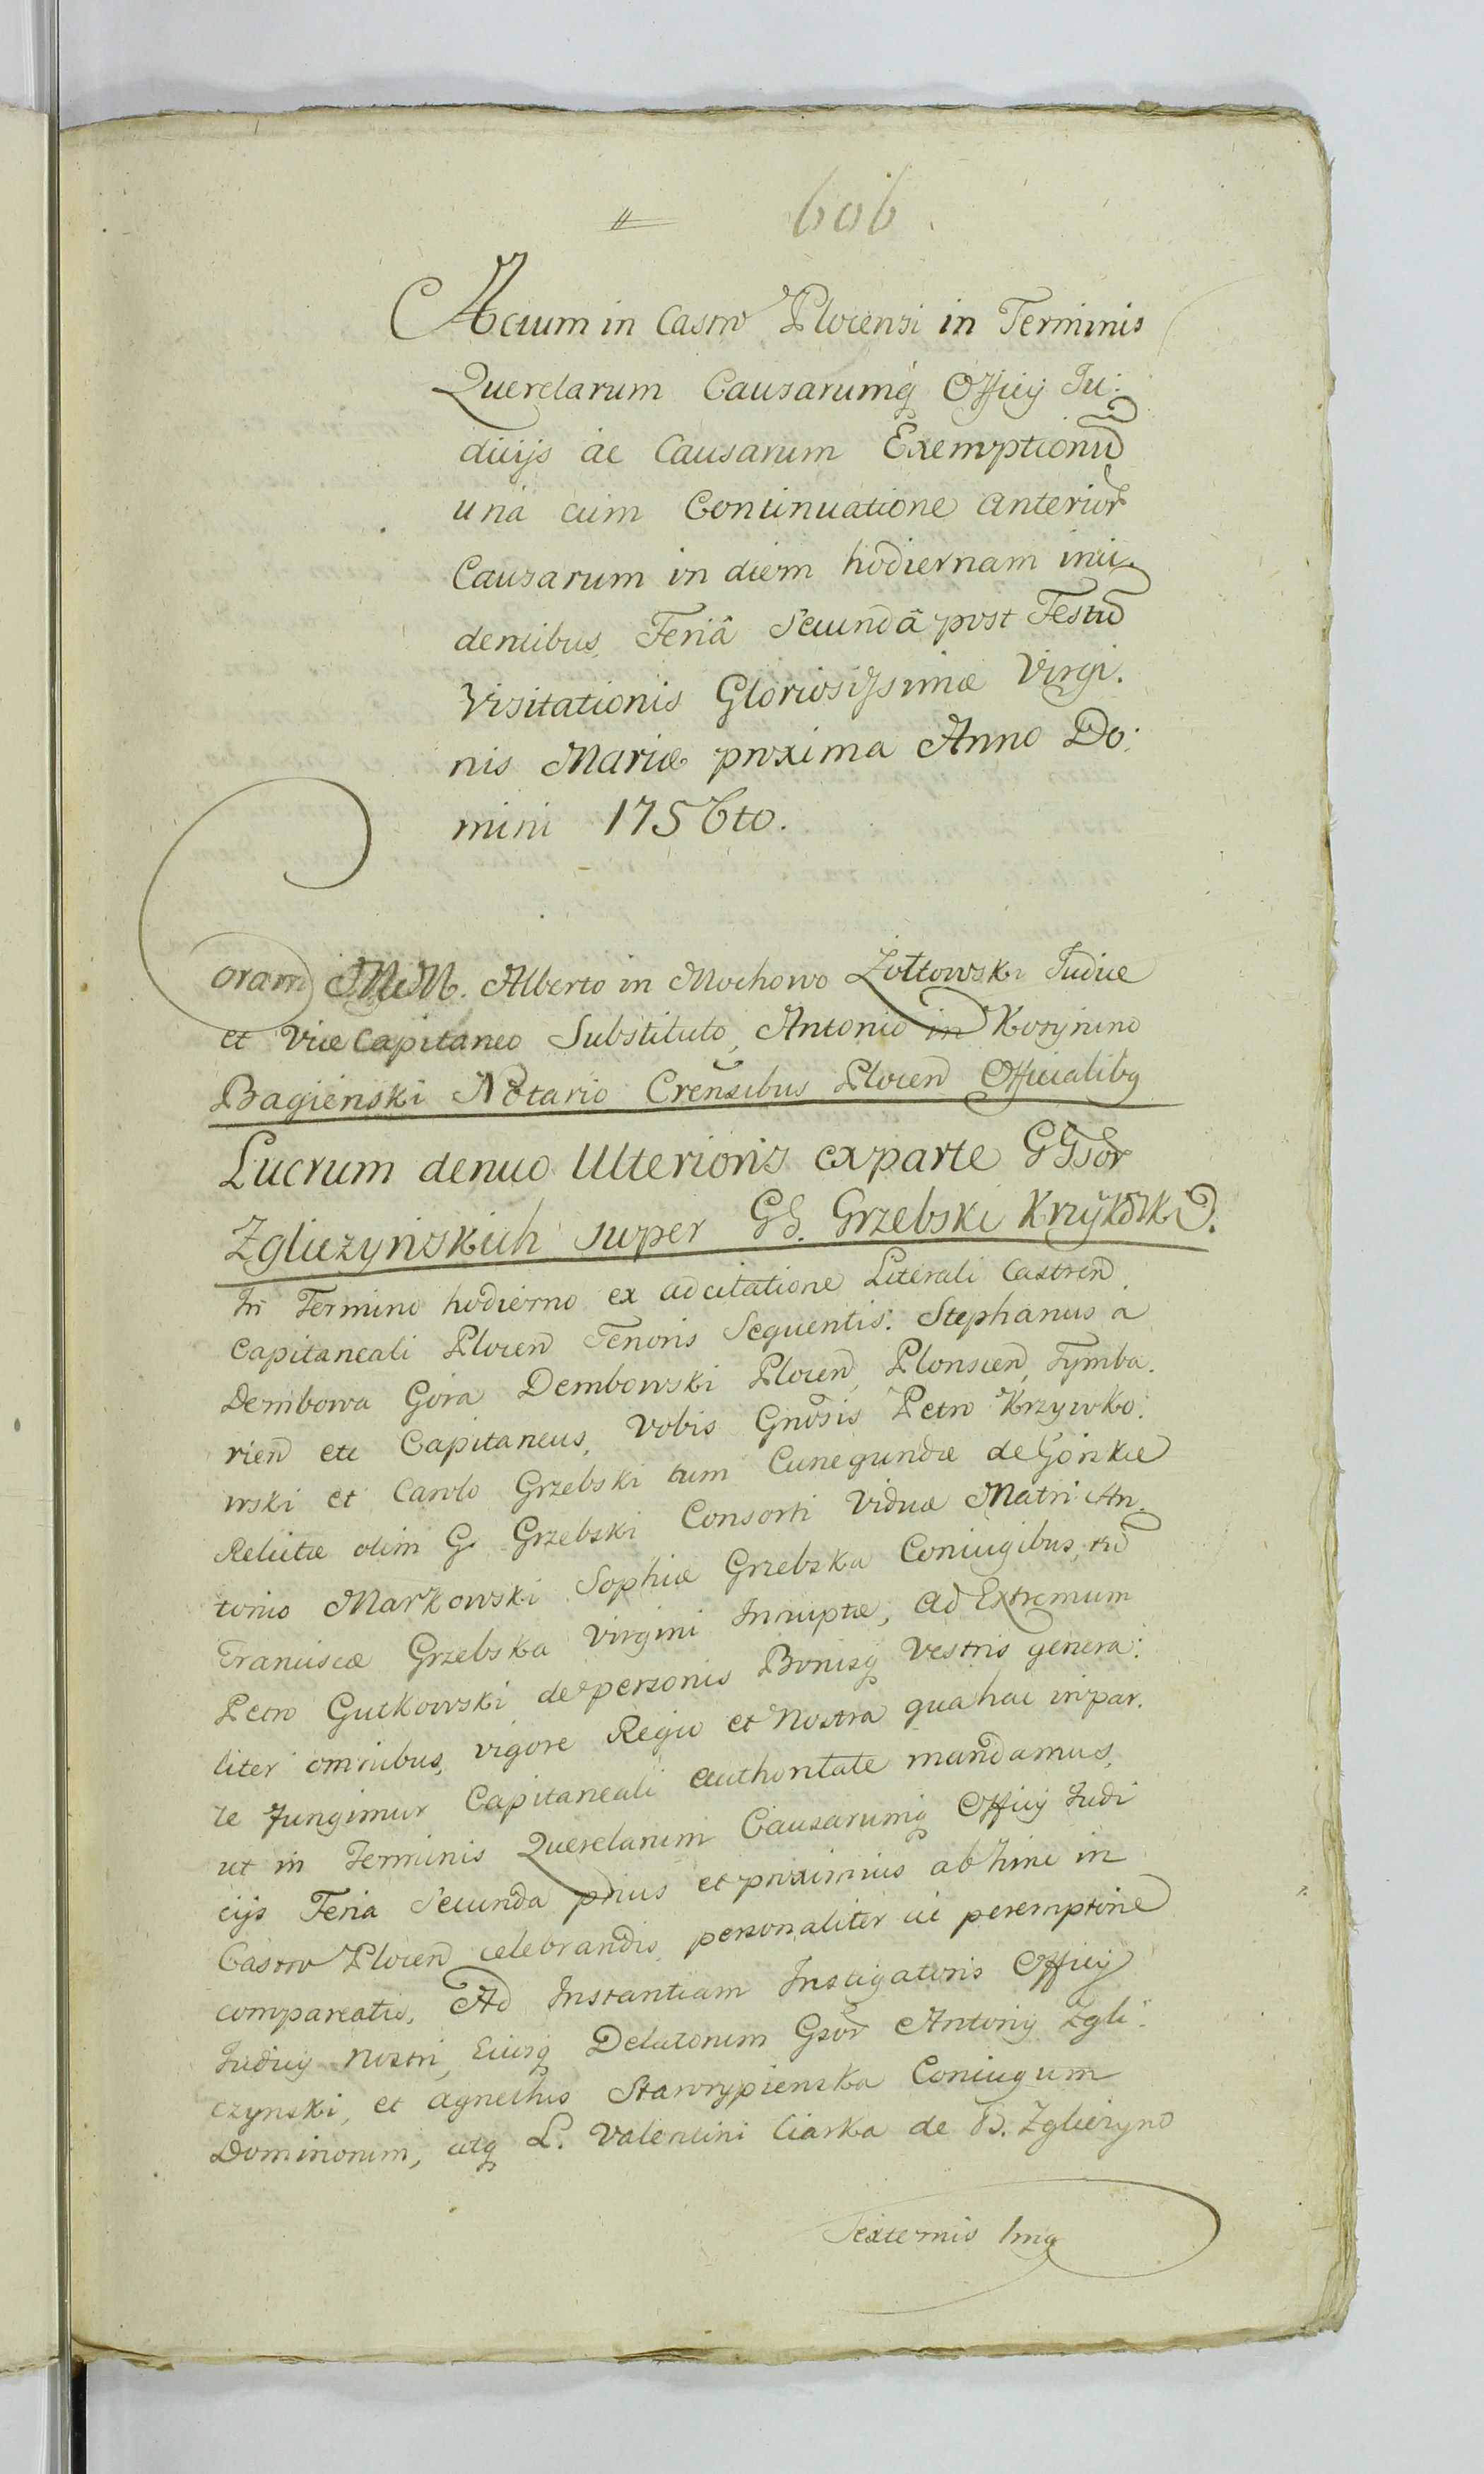 606.
Actum in Castro Plocensi in Terminis
Querelarum Causarumq Officij Iu:
dicijs ac Causarum Exemptionũ
una cum Continuatione anterior
Causarum in diem hodiernam inci
dentibus, Feriâ Secundâ post Festũ
Visitationis Gloriosissimæ Virgi.
nis Mariæ proxima Anno Do:
mini 1756to.
Coram MM. Alberto in Mochowo Zołtowski Iudice
et Vice Capitaneo Substituto, Antonio in Kosynino
Bagienski Notario Crensibus Plocen Officialibq
Lucrum denuo Ulterioris ex parte GGsor
Zgliczynskich super GG. Grzebski Krzykowsk
In Termino hodierno ex adcitatione Literali Castren
Capitaneali Plocen Tenoris Sequentis: Stephanus à
Dembowa Gora Dembowski Plocen, Plonscen, Tymba.
rien etc Capitaneus, Vobis Gnosis Petro Krzywko:
wski et Carolo Grzebski tum Cunegundæ de Gorskie
Relictæ olim G. Grzebski Consorti Viduæ Matri An.
tonio Markowski Sophiæ Grzebska Coniugibus,
Franciscæ Grzebska Virgini Innuptæ, ad Extremum
Petro Gutkowski de personis Bonisq Vestris genera:
liter omnibus, vigore Regio et Nostra qua hac in par.
te Fungimur Capitaneali authoritate mandamus,
ut in Terminis Querelarum Causarumq Officij Iudi
cijs Feria Secunda prius et proximius abhinc in
Castro Plocen celebrandis, personaliter ac peremptorie
compareatis, Ad Instantiam Instigatoris Officij
Iudicij Nostri, Eiusq Delatorum Gsor Antonij Zgli:
czynski, et Agnethis Stawrypienska Coniugum
Dominorum, atq L. Valentini Ciarka de B. Zgliczyno
Sexternio 1mq